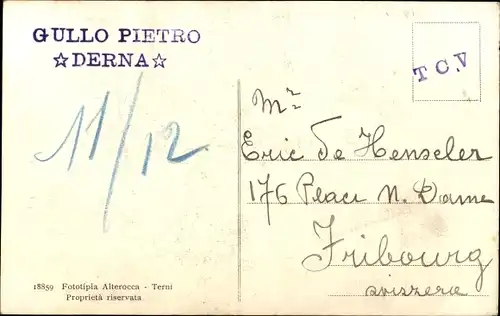 GULLO PIETRO
☆DERNA☆
11/12
18859 Fototipia Alterocca - Terni
Proprietà riservata
T C V
Mr
Eric de Henseler
176 Place N. Dame
Fribourg
svizzera